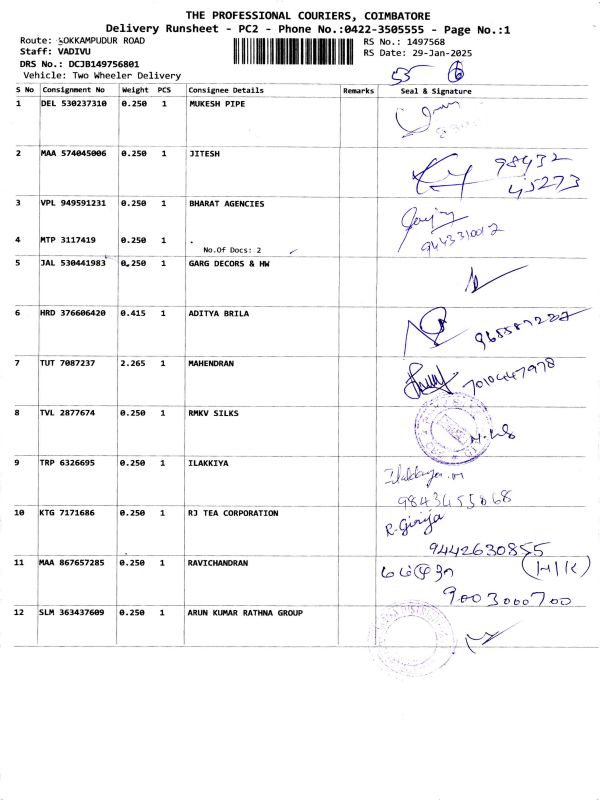 THE PROFESSIONAL COURIERS, COIMBATORE
Delivery Runsheet - PC2 - Phone No.:0422-3505555 - Page No.:1
Route: SOKKAMPUDUR ROAD RS No.: 1497568
Staff: VADIVU RS Date: 29-Jan-2025
DRS No.: DCJB149756801 55 6
Vehicle: Two Wheeler Delivery
S No Consignment No Weight PCS Consignee Details Remarks Seal & Signature
1 DEL 530237310 0.250 1 MUKESH PIPE
2 MAA 574045006 0.250 1 JITESH 98432
45273
3 VPL 949591231 0.250 1 BHARAT AGENCIES
4 MTP 3117419 0.250 1 . 9443310012
No.Of Docs: 2
5 JAL 530441983 0.250 1 GARG DECORS & HW
6 HRD 376606420 0.415 1 ADITYA BRILA
7 TUT 7087237 2.265 1 MAHENDRAN 7010447978
8 TVL 2877674 0.250 1 RMKV SILKS
9 TRP 6326695 0.250 1 ILAKKIYA Ilakkiya.m
9843455068
10 KTG 7171686 0.250 1 RJ TEA CORPORATION R. Girija
9442630855
11 MAA 867657285 0.250 1 RAVICHANDRAN (H/K)
9003000700
12 SLM 363437609 0.250 1 ARUN KUMAR RATHNA GROUP